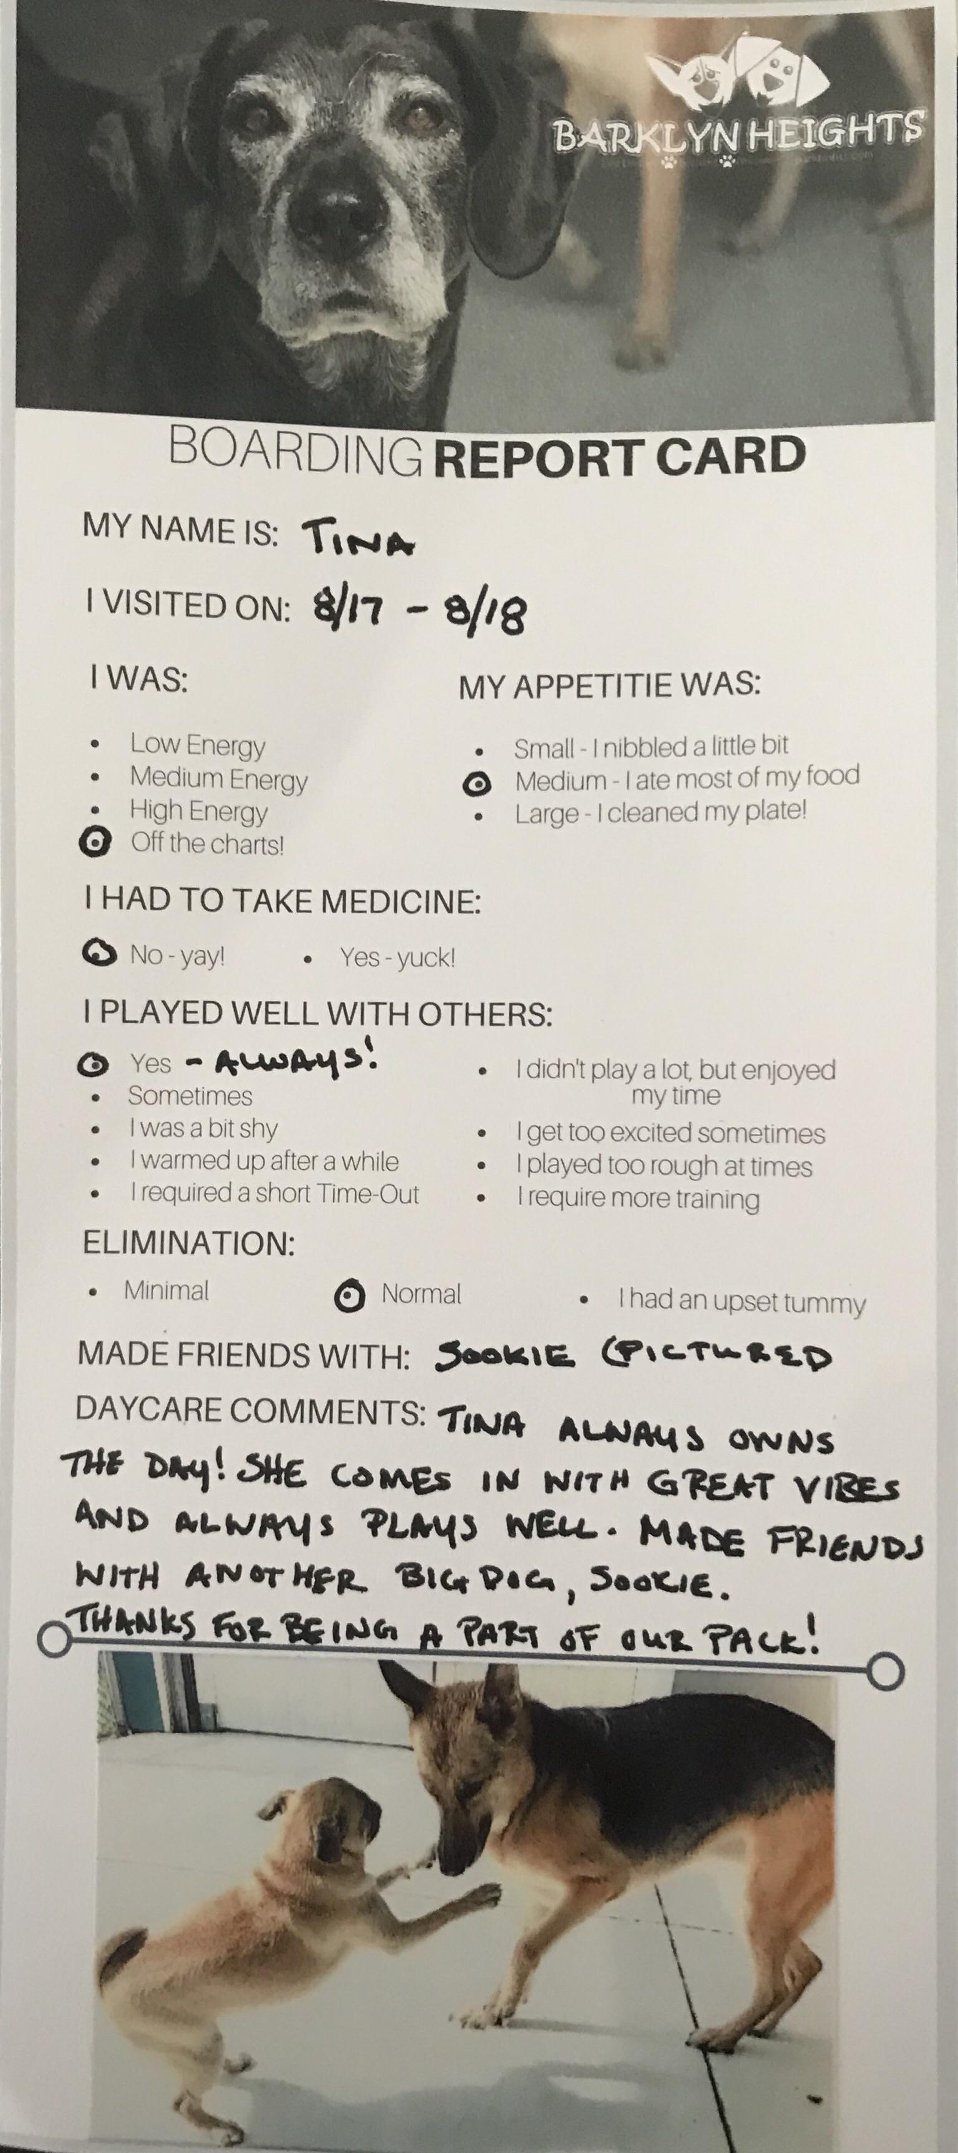 BARKLYN HEIGHTS
BOARDING REPORT CARD
MY NAME IS: TINA
I VISITED ON: 8/17 - 8/18
I WAS:
• Low Energy
• Medium Energy
• High Energy
• Off the charts!
MY APPETITIE WAS:
• Small - I nibbled a little bit
• Medium - I ate most of my food
• Large - I cleaned my plate!
I HAD TO TAKE MEDICINE:
• No - yay! • Yes - yuck!
I PLAYED WELL WITH OTHERS:
• Yes - ALWAYS!
• Sometimes
• I was a bit shy
• I warmed up after a while
• I required a short Time-Out
• I didn't play a lot, but enjoyed
my time
• I get too excited sometimes
• I played too rough at times
• I require more training
ELIMINATION:
• Minimal • Normal • I had an upset tummy
MADE FRIENDS WITH: SOOKIE (PICTURED
DAYCARE COMMENTS: TINA ALWAYS OWNS
THE DAY! SHE COMES IN WITH GREAT VIBES
AND ALWAYS PLAYS WELL. MADE FRIENDS
WITH ANOTHER BIG DOG, SOOKIE.
THANKS FOR BEING A PART OF OUR PACK!